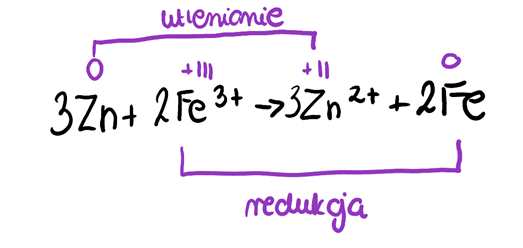 utlenianie
0 +III +II 0
3Zn + 2Fe³⁺ → 3Zn²⁺ + 2Fe
redukcja